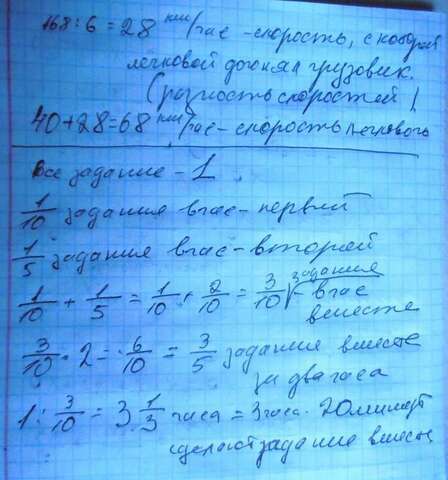 168:6=28 км/час - скорость, с которой
легковой догонял грузовик.
(разность скоростей)
40+28=68 км/час - скорость легкового
Все задание - 1
1/10 задания в час - первый
1/5 задания в час - второй
1/10 + 1/5 = 1/10 + 2/10 = 3/10 задания в час
вместе
3/10 · 2 = 6/10 = 3/5 задания вместе
за два часа
1 : 3/10 = 3 1/3 часа = 3 часа 20 минут
сделают задание вместе